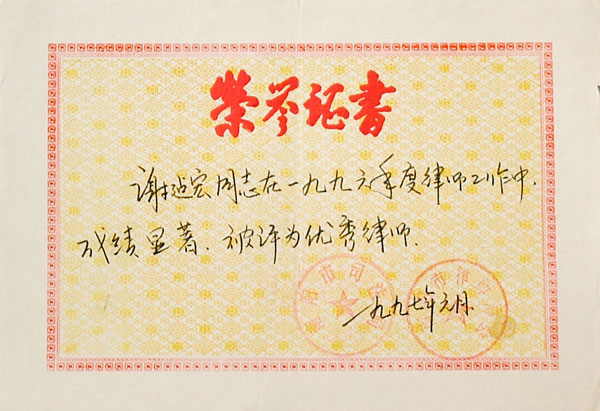 荣誉证书
谢 宏同志在一九九六年度律师工作中.
成绩显著、被评为优秀律师.
市司
一九九七年元月.